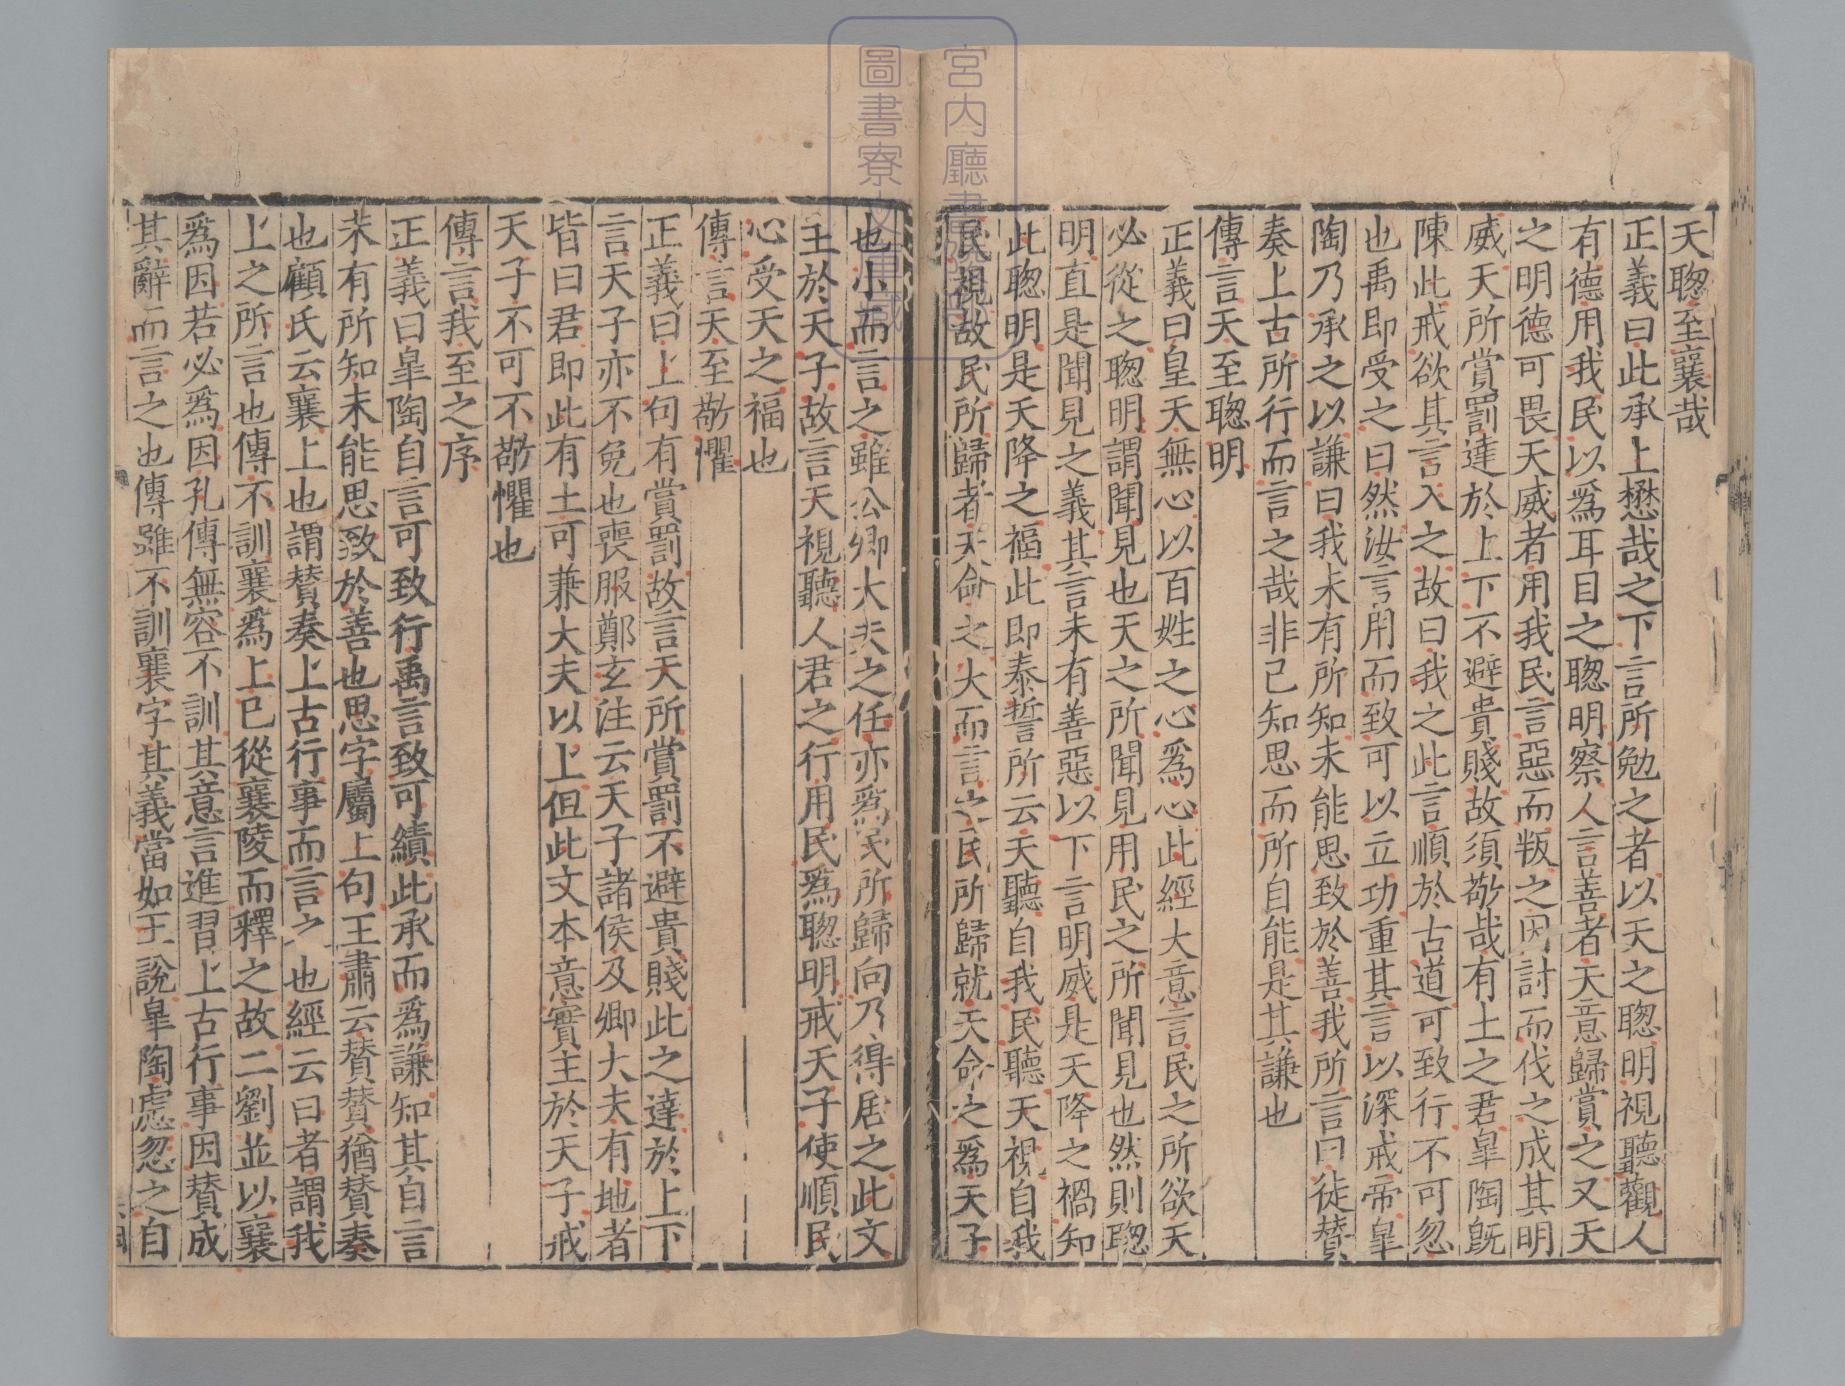 天聦至襄哉
正義曰此承上懋哉之下言所勉之者以天之聦明視聽觀人
有德用我民以爲耳目之聦明察人言善者天意歸賞之又天
之明德可畏天威者用我民言惡而叛之因討而伐之成其明
威天所賞罰達於上下不避貴賤故須敬哉有土之君皐陶既
陳此戒欲其言入之故曰我之此言順於古道可致行不可忽
也禹即受之曰然汝言用而致可以立功重其言以深戒帝皐
陶乃承之以謙曰我未有所知未能思致於善我所言曰徒賛
奏上古所行而言之哉非己知思而所自能是其謙也
傳言天至聦明
正義曰皇天無心以百姓之心爲心此經大意言民之所欲天
必從之聦明謂聞見也天之所聞見用民之所聞見也然則聦
明直是聞見之義其言未有善惡以下言明威是天降之禍知
此聦明是天降之福此即泰誓所云天聽自我民聽天視自我
民視故民所歸者天命之大而言之民所歸就天命之爲天子
也小而言之雖公卿大夫之任亦爲民所歸向乃得居之此文
主於天子故言天視聽人君之行用民爲聦明戒天子使順民
心受天之福也
傳言天至敬懼
正義曰上句有賞罰故言天所賞罰不避貴賤此之達於上下
言天子亦不免也喪服鄭玄注云天子諸侯及卿大夫有地者
皆曰君即此有土可兼大夫以上但此文本意實主於天子戒
天子不可不敬懼也
傳言我至之序
正義曰皐陶自言可致行禹言致可績此承而爲謙知其自言
未有所知未能思致於善也思字屬上句王肅云賛賛猶賛奏
也顧氏云襄上也謂賛奏上古行事而言之也經云曰者謂我
上之所言也傳不訓襄爲上已從襄陵而釋之故二劉並以襄
爲因若必爲因孔傳無容不訓其意言進習上古行事因賛成
其辭而言之也傳雖不訓襄字其義當如王說皐陶慮忽之自
宮内廳書陵部
圖書寮文庫藏